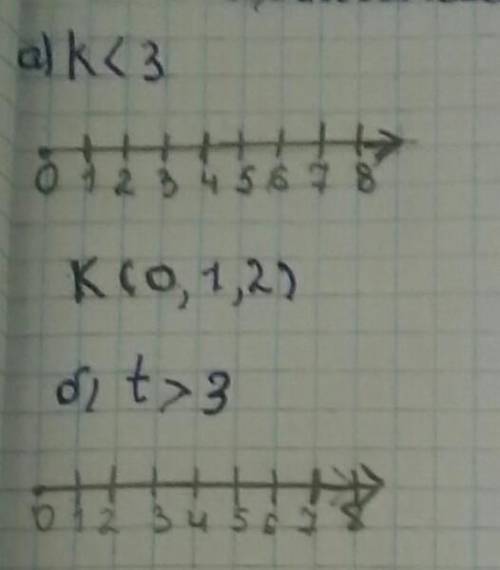 а) k < 3
0 1 2 3 4 5 6 7 8
K (0, 1, 2)
б) t > 3
0 1 2 3 4 5 6 7 8